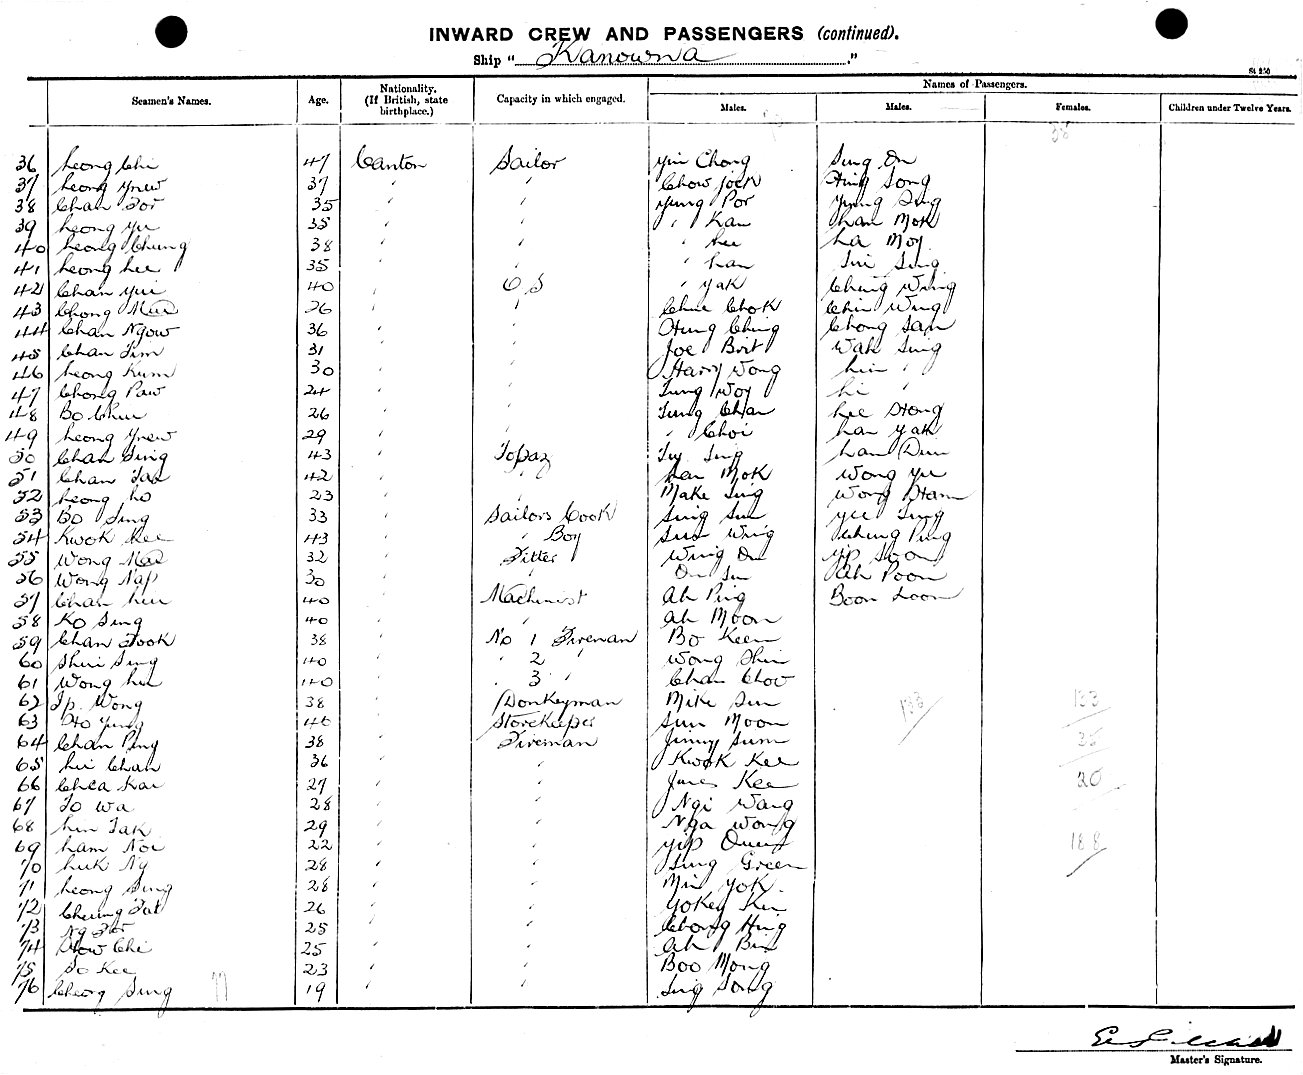 INWARD CREW AND PASSENGERS (continued).
Ship " Kanowna ."
Seamen's Names. Age. Nationality. (If British, state birthplace.) Capacity in which engaged. Names of Passengers.
Males. Males. Females. Children under Twelve Years.
36 Leong Chi 47 Canton Sailor Yin Chong Sing On
37 Leong Ynew 37 " " Chow Joek Hing Song
38 Chan For 35 " " Yung Por Yung Sing
39 Leong Yu 35 " " " Kan Lan Mok
40 Leong Chung 38 " " " Lee La Moy
41 Leong Lee 35 " " " Lan Sui Sing
42 Chan Yui 40 " O S " Yak Ching Wing
43 Chong Mai 26 " " Chue Chok Chin Wing
44 Chan Ngow 36 " " Hung Ching Chong San
45 Chan Tim 31 " " Joe Brit Wah Sing
46 Leong Kum 30 " " Harry Wong Lin "
47 Chong Paw 24 " " Sung Woy Li "
48 Bo Chui 26 " " Tung Chan Lee Hong
49 Leong Ynew 29 " " " Choi Lan Yak
50 Chan Sing 43 " Topaz Tuy Sing Lan Dun
51 Chan Tai 42 " " Lan Mok Wong Yu
52 Leong Lo 23 " " Make Sing Wong Ham
53 Bo Sing 33 " Sailors Cook Sing Sun Yee Sung
54 Kwok Kee 43 " " Boy Sun Wing Ching Ping
55 Wong Mai 32 " Fitter Wing On Yip Soon
56 Wong Nap 30 " " On Sun Ah Poon
57 Chan Lui 40 " Machinist Ah Ping Boon Loon
58 Ko Sing 40 " " Ah Moon
59 Chan Fook 38 " No 1 Fireman Bo Keen
60 Shui Sing 40 " " 2 " Wong Shin
61 Wong Lui 40 " " 3 " Chan Chow
62 Ip Wong 38 " Donkeyman Mike Sun
63 Ho Yung 40 " Storekeeper Sun Moon
64 Chan Ping 38 " Fireman Jimmy Sum
65 Lui Chan 36 " " Kwok Kee
66 Chea Kai 27 " " James Kee
67 To Wa 28 " " Ngi Wang
68 Lin Tak 29 " " Nga Wong
69 Lam Noi 22 " " Yip Quey
70 Luk Ng 28 " " Sing Green
71 Leong Sing 28 " " Min Yok
72 Cheung Fat 26 " " Yokey Kin
73 Ng For 25 " " Chong Hing
74 How Chi 25 " " Ah Bin
75 So Kee 23 " " Boo Mong
76 Cheong Sing 19 " " Sing Song
133 133
35
20
188
Master's Signature.